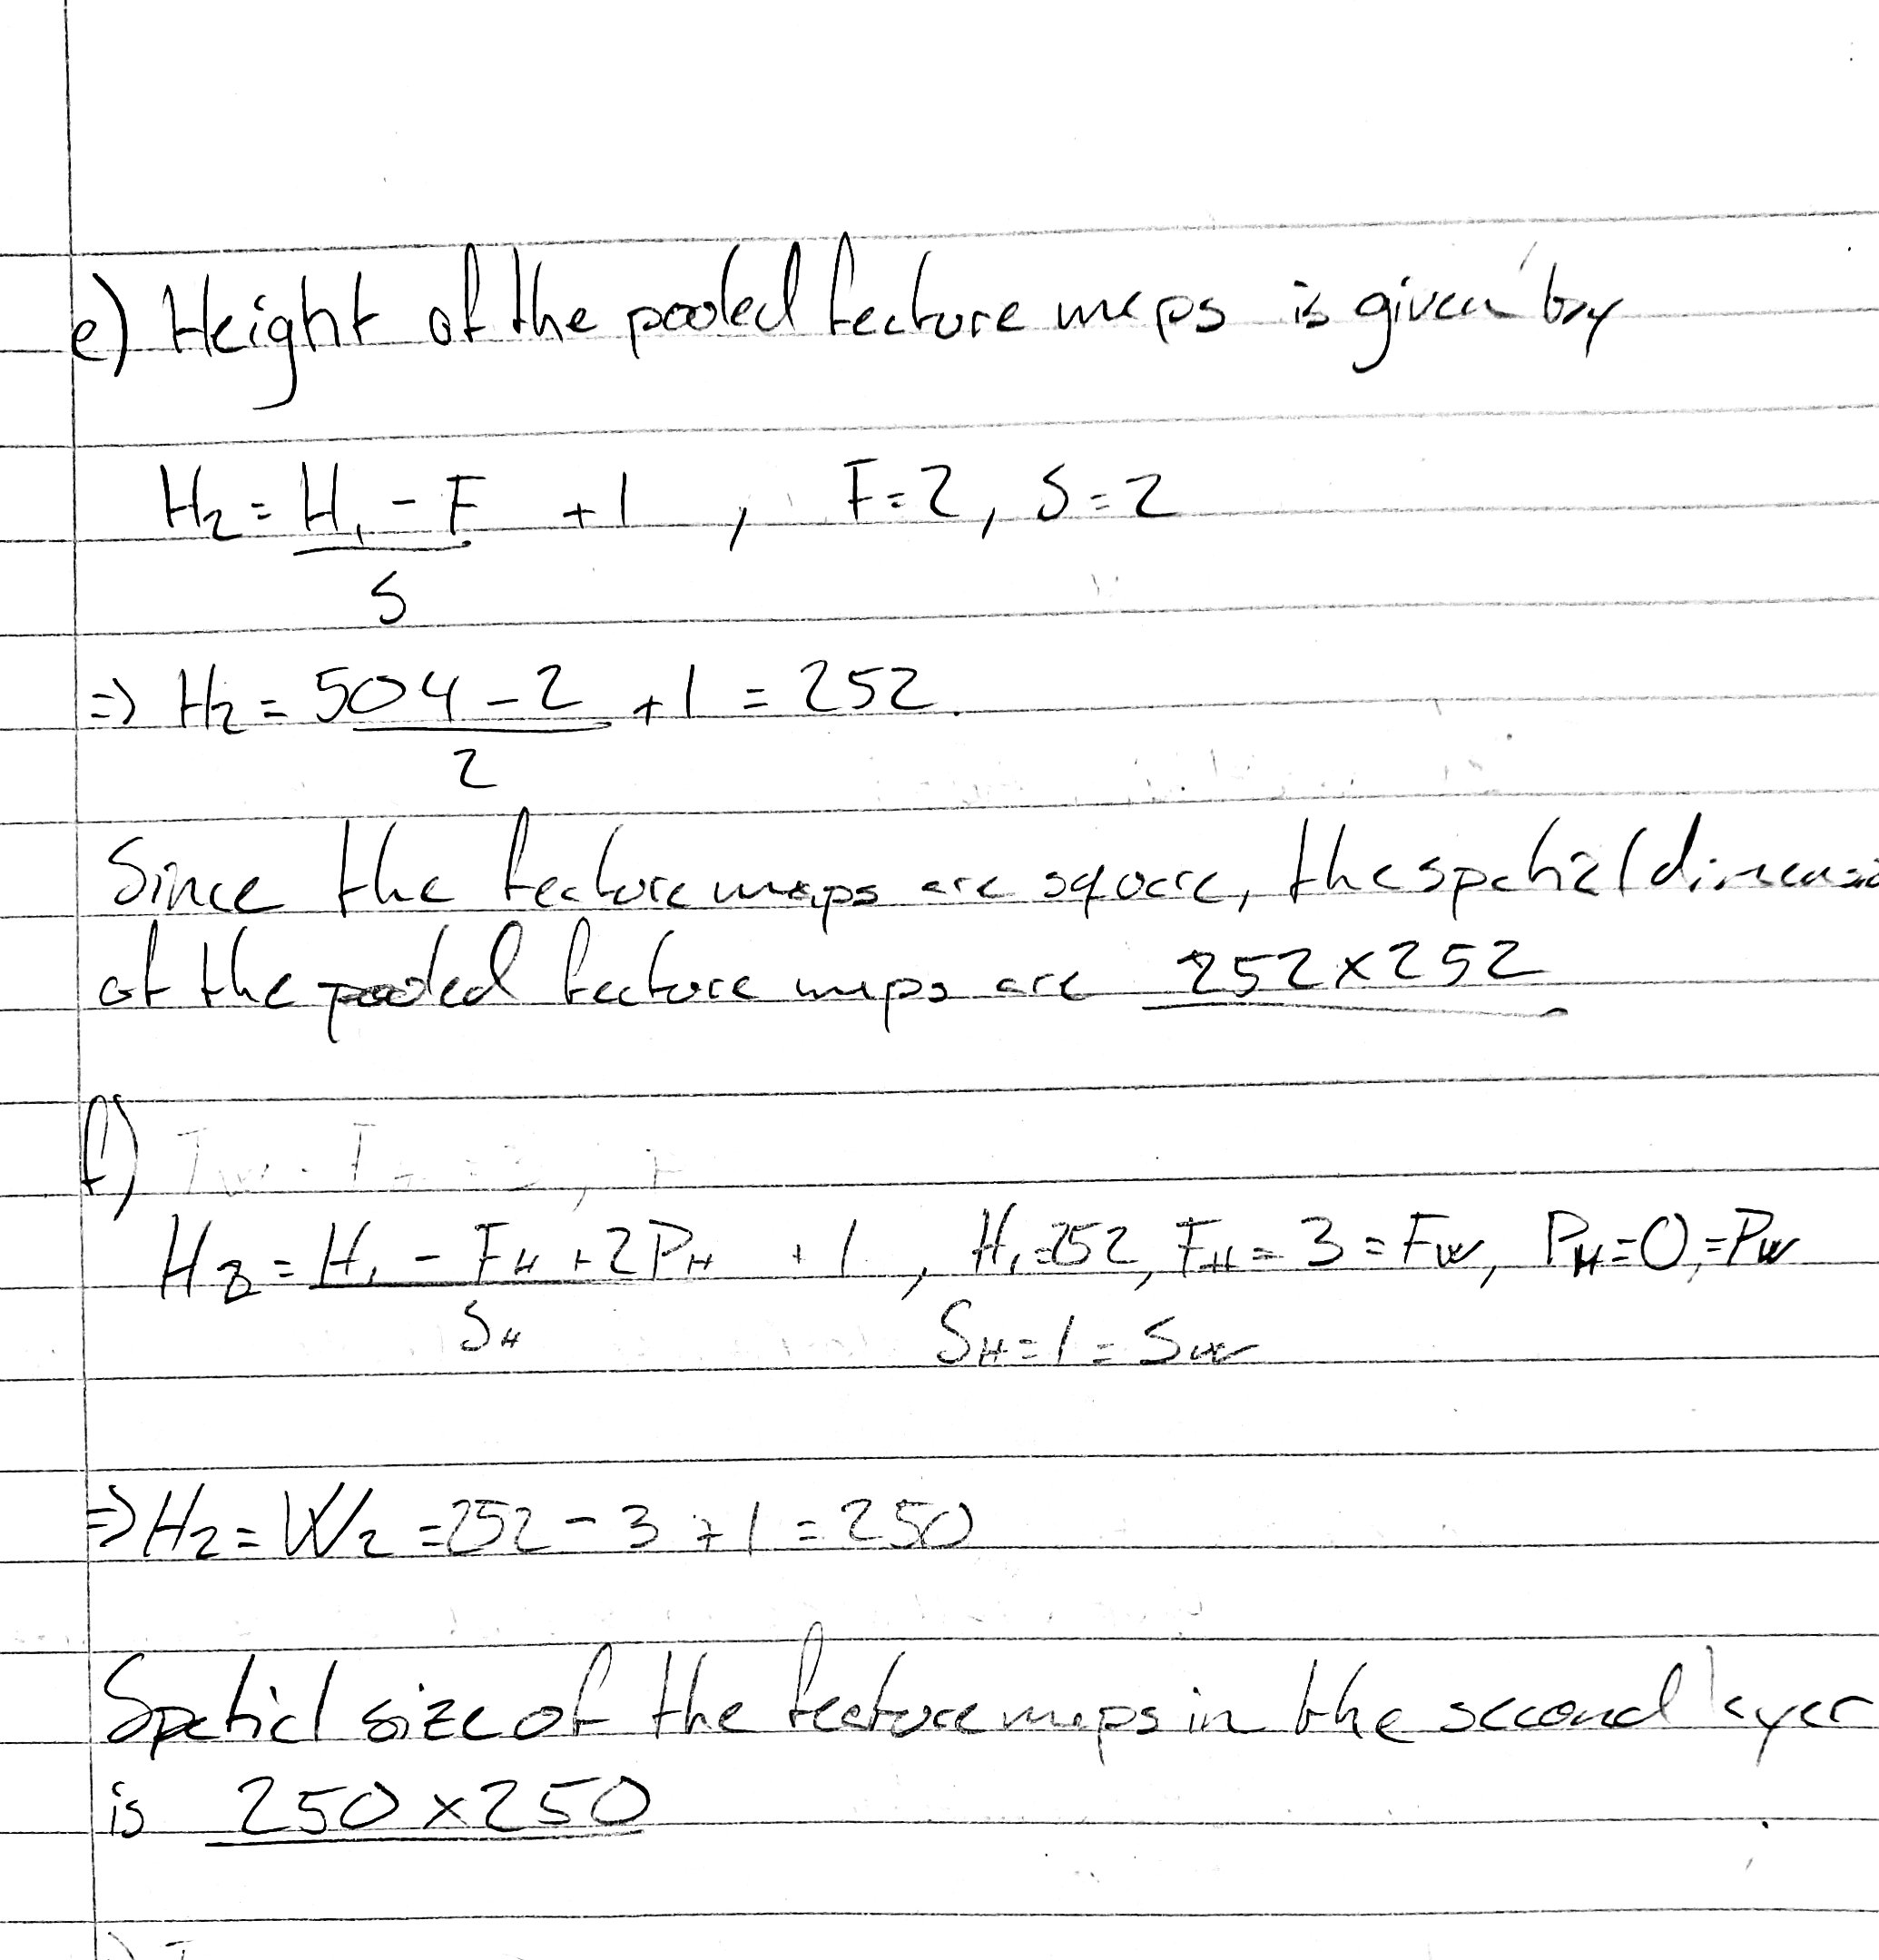 e) Height of the pooled feature maps is given by
H₂ = (H₁ - F)/S + 1 , F=2, S=2
=> H₂ = (504 - 2)/2 + 1 = 252.
Since the feature maps are square, the spatial dimensio
of the pooled feature maps are 252×252
f)
H₂ = (H₁ - F_H + 2P_H)/S_H + 1, H₁=252, F_H = 3 = F_W, P_H=0=P_W
S_H=1=S_W
=> H₂ = W₂ = 252 - 3 + 1 = 250
Spatial size of the feature maps in the second layer
is 250×250